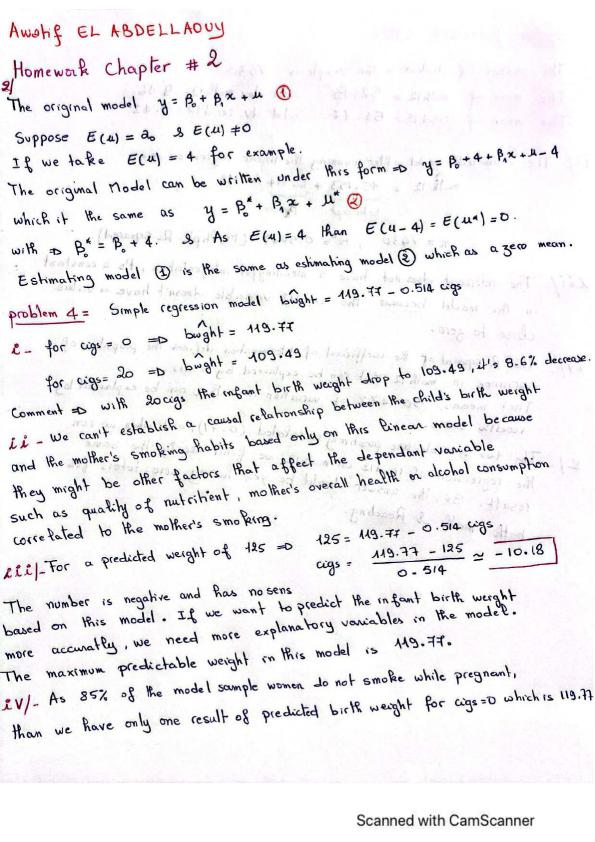 Awatif EL ABDELLAOUY
Homework Chapter # 2
2/
The original model y = β₀ + β₁x + μ ①
Suppose E(μ) = a₀ & E(μ) ≠ 0
If we take E(μ) = 4 for example.
The original Model can be written under this form ⇒ y = β₀ + 4 + β₁x + μ - 4
which it the same as y = β₀* + β₁x + μ* ②
with ⇒ β₀* = β₀ + 4. & As E(μ) = 4 than E(μ-4) = E(μ*) = 0.
Estimating model ① is the same as estimating model ② which as a zero mean.
problem 4 = Simple regression model bŵght = 119.77 - 0.514 cigs
i - for cigs = 0 ⇒ bŵght = 119.77
for cigs = 20 ⇒ bŵght = 109.49
Comment ⇒ with 20 cigs the infant birth weight drop to 109.49, it's 8.6% decrease.
ii - We can't establish a causal relationship between the child's birth weight
and the mother's smoking habits based only on this linear model because
they might be other factors that affect the dependant variable
such as quality of nutritient, mother's overall health or alcohol consumption
correlated to the mother's smoking.
iii/- For a predicted weight of 125 ⇒ 125 = 119.77 - 0.514 cigs
cigs = (119.77 - 125) / 0.514 ≃ -10.18
The number is negative and has no sens
based on this model. If we want to predict the infant birth weight
more accuratly, we need more explanatory variables in the model.
The maximum predictable weight in this model is 119.77.
iv/- As 85% of the model sample women do not smoke while pregnant,
than we have only one result of predicted birth weight for cigs=0 which is 119.77
Scanned with CamScanner